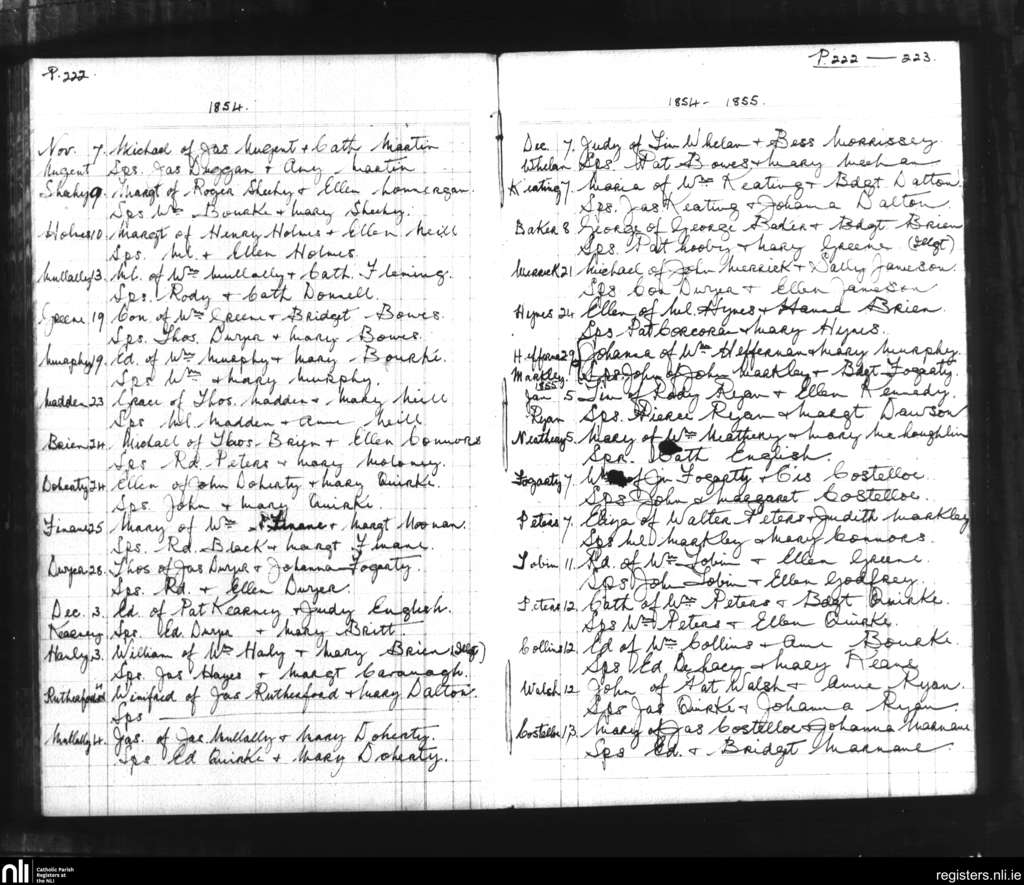 P. 222.
1854.
Nov. 7. Michael of Jas Nugent & Cath Martin
Nugent Sps. Jas Duggan & Amy Martin
Sheehy 9. Margt of Roger Sheehy & Ellen Lonnergan
Sps Wm Bourke & Mary Sheehy.
Holmes 10. Margt of Henry Holmes & Ellen Neill
Sps. Ml. & Ellen Holmes
Mullally 13. Ml. of Wm Mullally & Cath. Fleming.
Sps. Rody & Cath Donnell.
Greene 19. Con. of Wm Greene & Bridget Bowes.
Sps. Thos. Dwyer & Mary Bowes.
Murphy 19. Ed. of Wm Murphy & Mary Bourke.
Sps Wm & Mary Murphy.
Madden 23 Grace of Thos. Madden & Mary Neill
Sps Ml. Madden & Anne Neill
Brien 24. Michael of Thos. Brien & Ellen Connors
Sps Rd. Peters & Mary Moloney.
Doherty 24. Ellen of John Doherty & Mary Quirke.
Sps. John & Mary Quirke.
Finane 25 Mary of Wm Finane & Margt Noonan.
Sps. Rd. Black & Margt Finane.
Dwyer 28. Thos of Jas Dwyer & Johanna Fogarty.
Sps. Rd. & Ellen Dwyer.
Dec. 3. Ed. of Pat Kearney & Judy English.
Kearney Sps. Ed Dwyer & Mary Britt.
Hanly 3. William of Wm Haly & Mary Brien (Illgt)
Sps. Jas Hayes & Margt Cavanagh.
Rutherford Winifred of Jas Rutherford & Mary Dalton.
Sps
Mullally 4. Jas. of Jas Mullally & Mary Doherty.
Sps Ed Quirke & Mary Doherty.
P. 222 — 223.
1854 - 1855.
Dec 7. Judy of Tim Whelan & Bess Morrissey
Whelan Sps. Pat Bowes & Mary Meehan
Keating 7. Maria of Wm Keating & Bdgt Dalton.
Sps. Jas Keating & Johanna Dalton.
Baker 8 George of George Baker & Bdgt Brien
Sps. Pat Mooby & Mary Greene (Illgt)
Merrick 21 Michael of John Merrick & Sally Jameson.
Sps Con Dwyer & Ellen Jameson
Hynes 24 Ellen of Ml. Hynes & Hanna Brien
Sps Pat Corcoran & Mary Hynes.
Heffernan 29 Johanna of Wm Heffernan & Mary Murphy.
Markley. Sps John of John Markley & Bdgt Fogarty.
1855
Jan 5 Tim of Rody Ryan & Ellen Kennedy.
Ryan Sps. Pierce Ryan & Margt Dawson
Neatheny 5. Mary of Wm Neatheny & Mary McLoughlin
Spr. Cath English.
Fogarty 7 of Jn Fogarty & Cis Costelloe.
Sps John & Margaret Costelloe.
Peters 7. Eliza of Walter Peters & Judith Markley
Sps Ml Markley & Mary Connors.
Tobin 11. Rd. of Wm Tobin & Ellen Greene
Sps John Tobin & Ellen Godfrey.
Peters 12. Cath of Wm Peters & Bdgt Quirke.
Sps Wm Peters & Ellen Quirke.
Collins 12. Ed of Wm Collins & Anne Bourke.
Sps Ed DeLacy & Mary Keane
Walsh 12 John of Pat Walsh & Anne Ryan.
Sps Jas Quirke & Johanna Ryan.
Costelloe 13. Mary of Jas Costelloe & Johanna Marnane
Sps Ed. & Bridget Marnane
nli Catholic Parish
Registers at
the NLI
registers.nli.ie